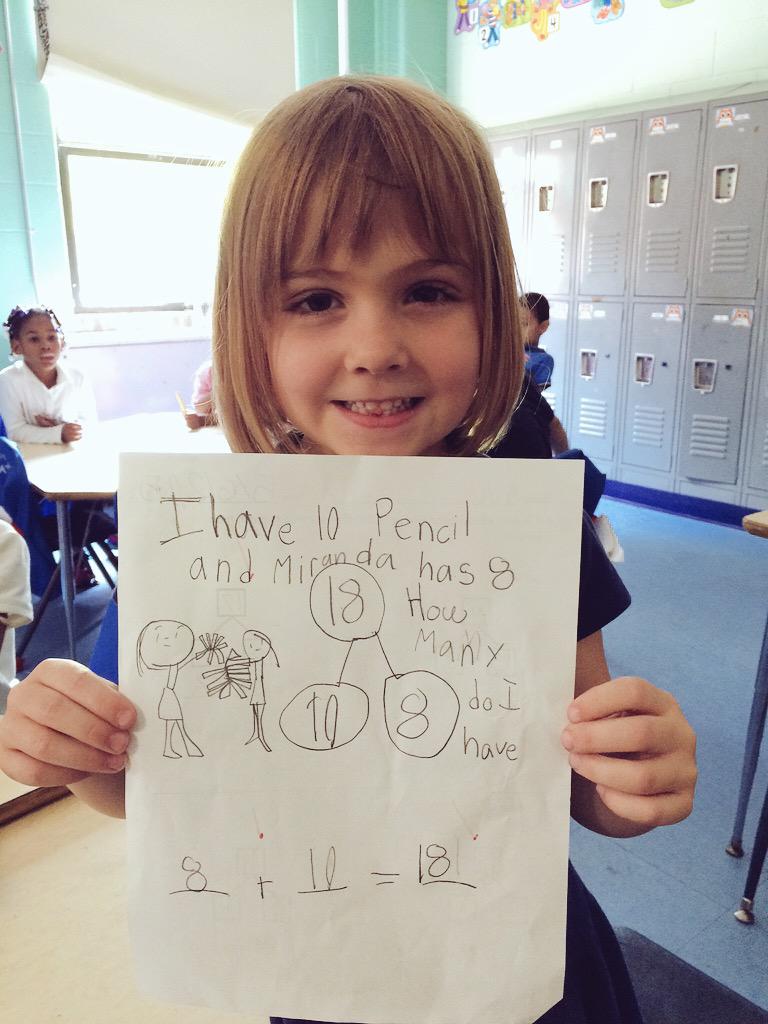 I have 10 Pencil
and Miranda has 8
18
How
Many
10
8
do I
have
8 + 10 = 18
1
2
4